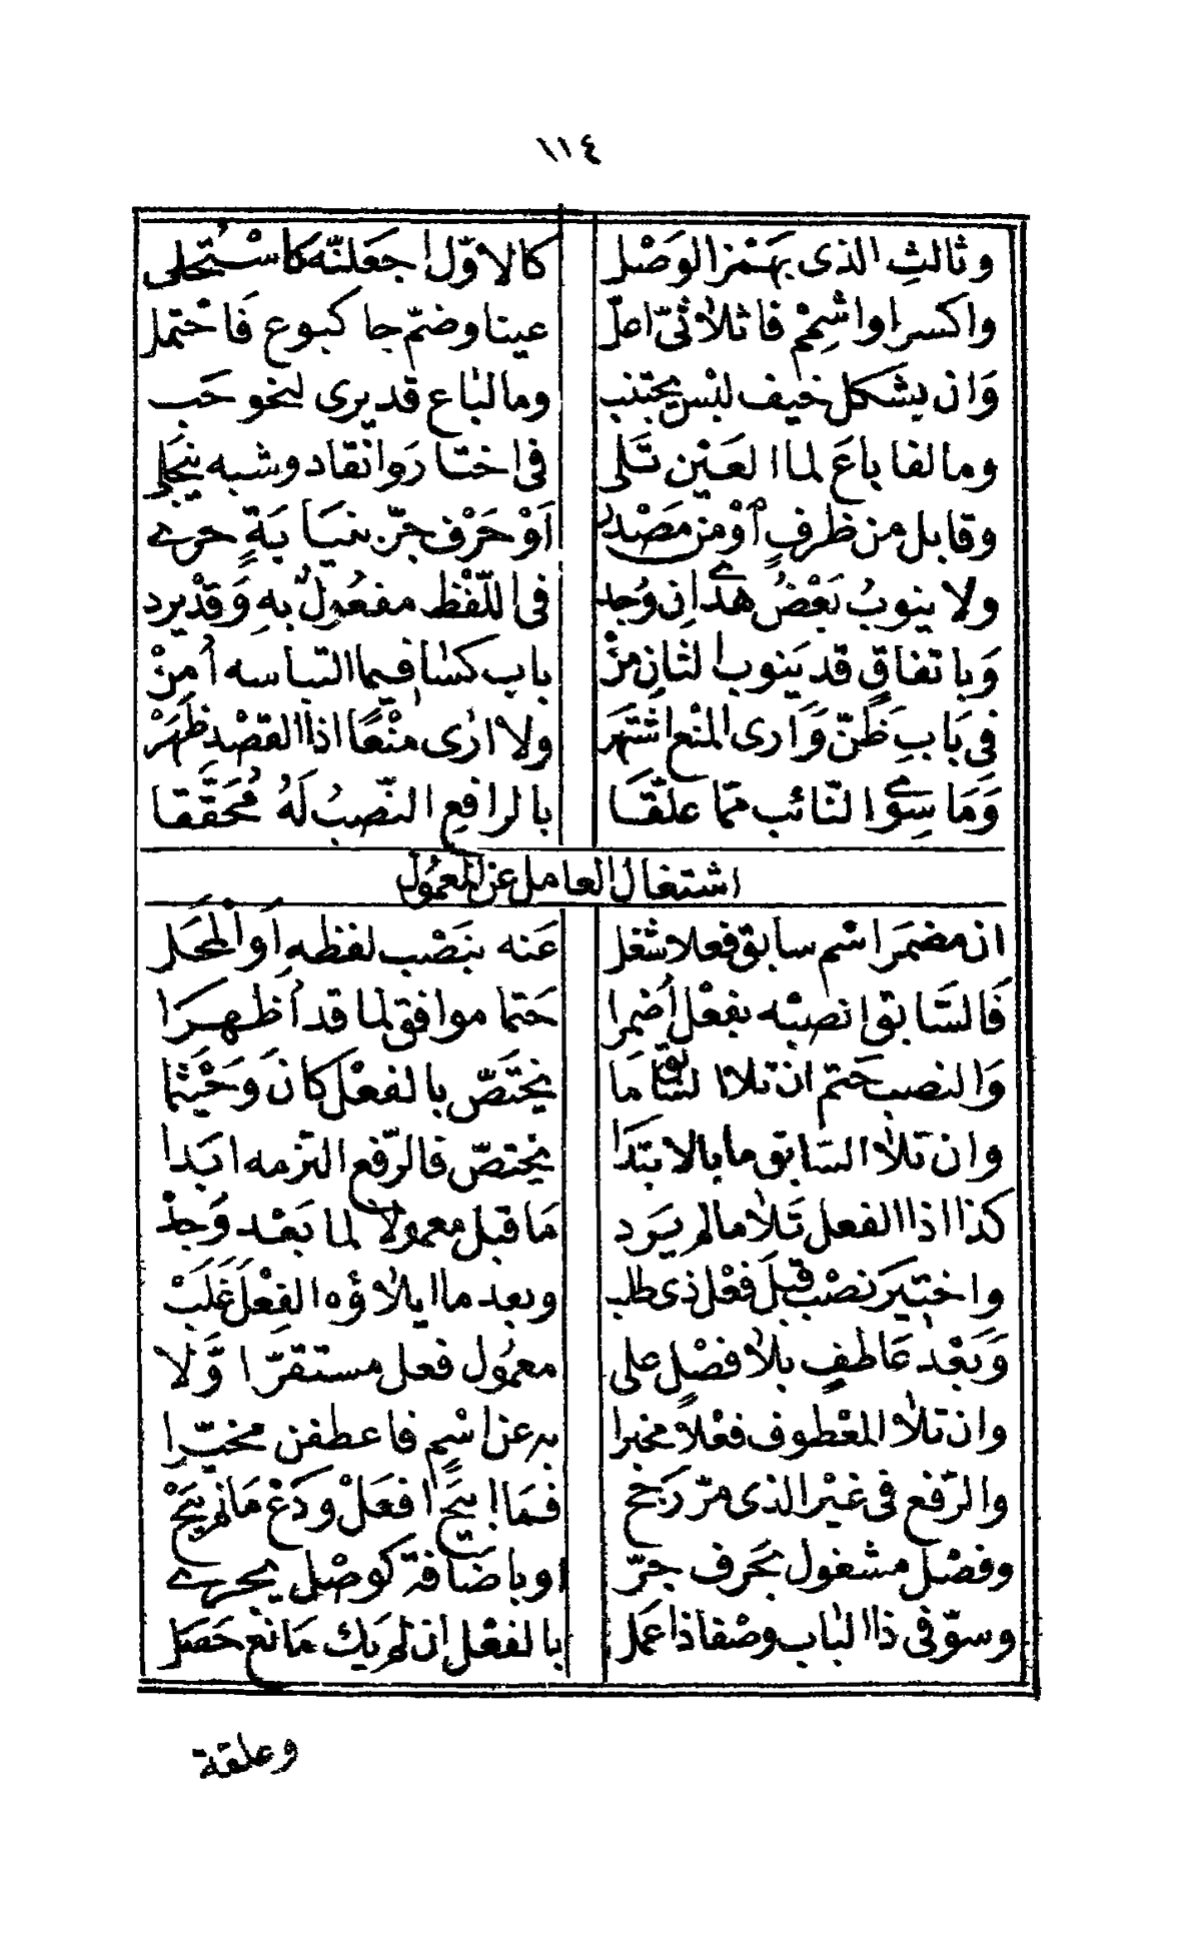 ١١٤
وثالثِ الذى بهَمْز الوَصْل كالاوّل اجعَلنّه كاسْتُحلى
واكسر او اشمِمْ فا ثلاثىّ اعلّ عينا وضمّ جا كبوع فَاحْتمل
وَان بشكل خيف لبْس يجتنب وما لباع قد يرى لنحو حَب
وما لفا باعَ لما العَيْن تَلى فى اختار وانقاد وشبه ينجَلى
وقابل من ظرفٍ اَوْ من مَصْدر اَوْ حَرْف جرّ بنيَابَةٍ حرى
ولا ينوبُ بَعْضُ هذى اِن وُجد فى اللّفْظ مفعُولٌ بهِ وَقدْ يرد
وَباتفاقٍ قد يَنوب الثانِ مِنْ باب كسٰا فيما التباسه اُمِنْ
فى بَابِ ظَنّ وَارى المنْع اشْتَهَر ولا ارٰى منْعًا اذا القصْد ظَهَرْ
وَمَا سِوَى النّائب ممّا علّقَا بالرافعِ النّصْبُ لَهُ مُحَقّقا
اشتغال العامل عن المعمُول
ان مضمَر اسْم سابق فعلا شغل عَنه بنَصْب لفظهِ اَو المحَل
فَالسَّابق انصبْه بفعْل اُضمرا حَتما موافق لما قد اُظهرَا
وَالنصب حَتم ان تلا السّابق مَا يختَصّ بالفعْل كان وَحَيْثما
وان تلٰا السّابق ما بالابتدَا يختصّ فالرّفع التزمه ابَدا
كذا اذا الفعل تَلٰا ما لم يَرد مَا قبل معمولا لما بَعْد وُجدْ
واختيَر نصْب قبلَ فعْل ذى طلب وبعد ما ايلاؤه الفعْلَ غَلَبْ
وَبَعْد عَاطفٍ بلٰا فصْلٍ على معمُول فعل مستقرّا وَّلَا
وان تلٰا المعْطوف فعْلاً مخبرا به عن اسْمٍ فاعطفن مخيّرا
والرّفع فى غيْر الذى مرّ رَجَح فمَا ابيحَ افعَلْ ودَعْ مَا لم يُبَحْ
وفصْل مشغول بحَرف جرّ او باضَافة كوصْل يجرى
وسوّ فى ذا الباب وصْفا ذا عَمَل بالفعْل ان لم يَك مَانع حَصَل
وعلقة